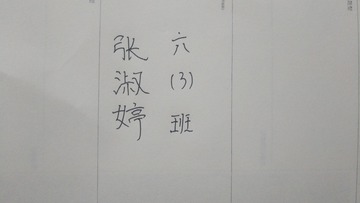 张淑婷
六(3)班